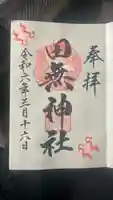 奉拝
田無神社
令和六年三月十六日